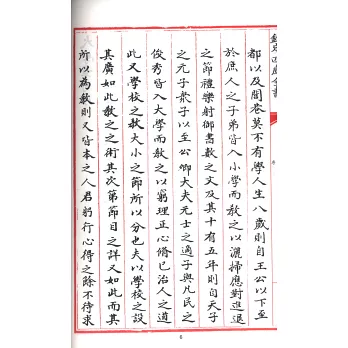 欽定四庫全書
都以及閭巷莫不有學人生八歲則自王公以下至
於庶人之子弟皆入小學而教之以灑掃應對進退
之節禮樂射御書數之文及其十有五年則自天子
之元子衆子以至公卿大夫元士之適子與凡民之
俊秀皆入大學而教之以窮理正心脩已治人之道
此又學校之教大小之節所以分也夫以學校之設
其廣如此教之之術其次第節目之詳又如此而其
所以為教則又皆本之人君躬行心得之餘不待求
6